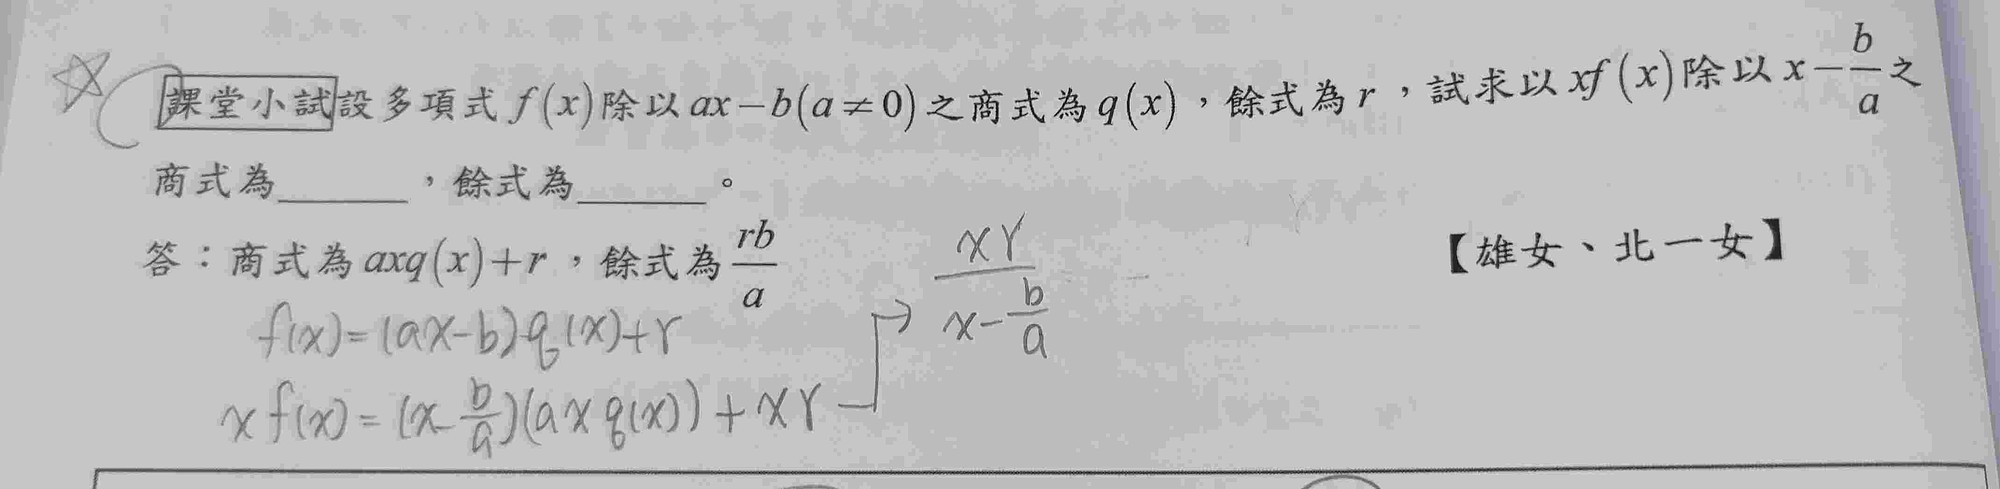 課堂小試設多項式 f(x)除以 ax－b(a≠0)之商式為 q(x)，餘式為 r，試求以 xf(x)除以 x－b/a 之
商式為______，餘式為______。
答：商式為 axq(x)+r，餘式為 rb/a
【雄女、北一女】
f(x)=(ax-b)q(x)+r
xf(x)=(x-b/a)(axq(x))+xr
→ xr/(x-b/a)